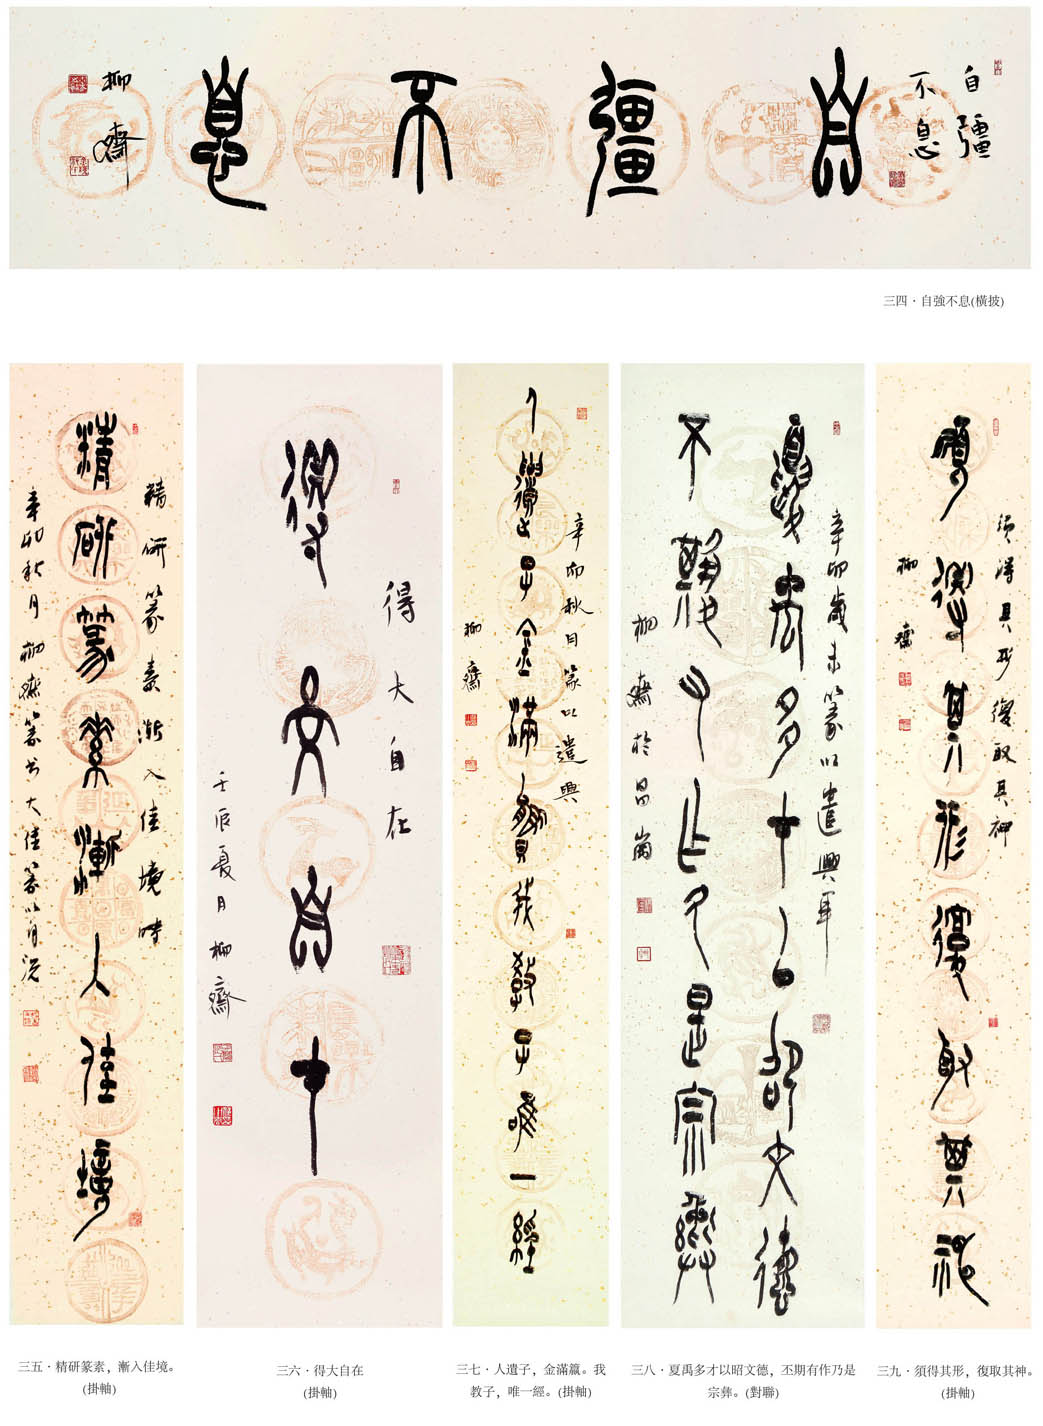 自彊
不息
自彊不息
柳齋
三四·自強不息(橫披)
精研篆素漸入佳境時
精研篆素漸入佳境
辛卯秋月柳齋篆書大佳篆以自況
三五·精研篆素，漸入佳境。
(掛軸)
得大自在
得大自在
壬辰夏月柳齋
三六·得大自在
(掛軸)
辛卯秋月篆以遣興
人遺子金滿籯我教子唯一經
柳齋
三七·人遺子，金滿籯。我
教子，唯一經。(掛軸)
辛卯歲末篆以遣興耳
夏禹多才以昭文德
不期有作乃是宗彝
柳齋於昌崗
三八·夏禹多才以昭文德，丕期有作乃是
宗彝。(對聯)
須得其形復取其神
須得其形復取其神
柳齋
三九·須得其形，復取其神。
(掛軸)